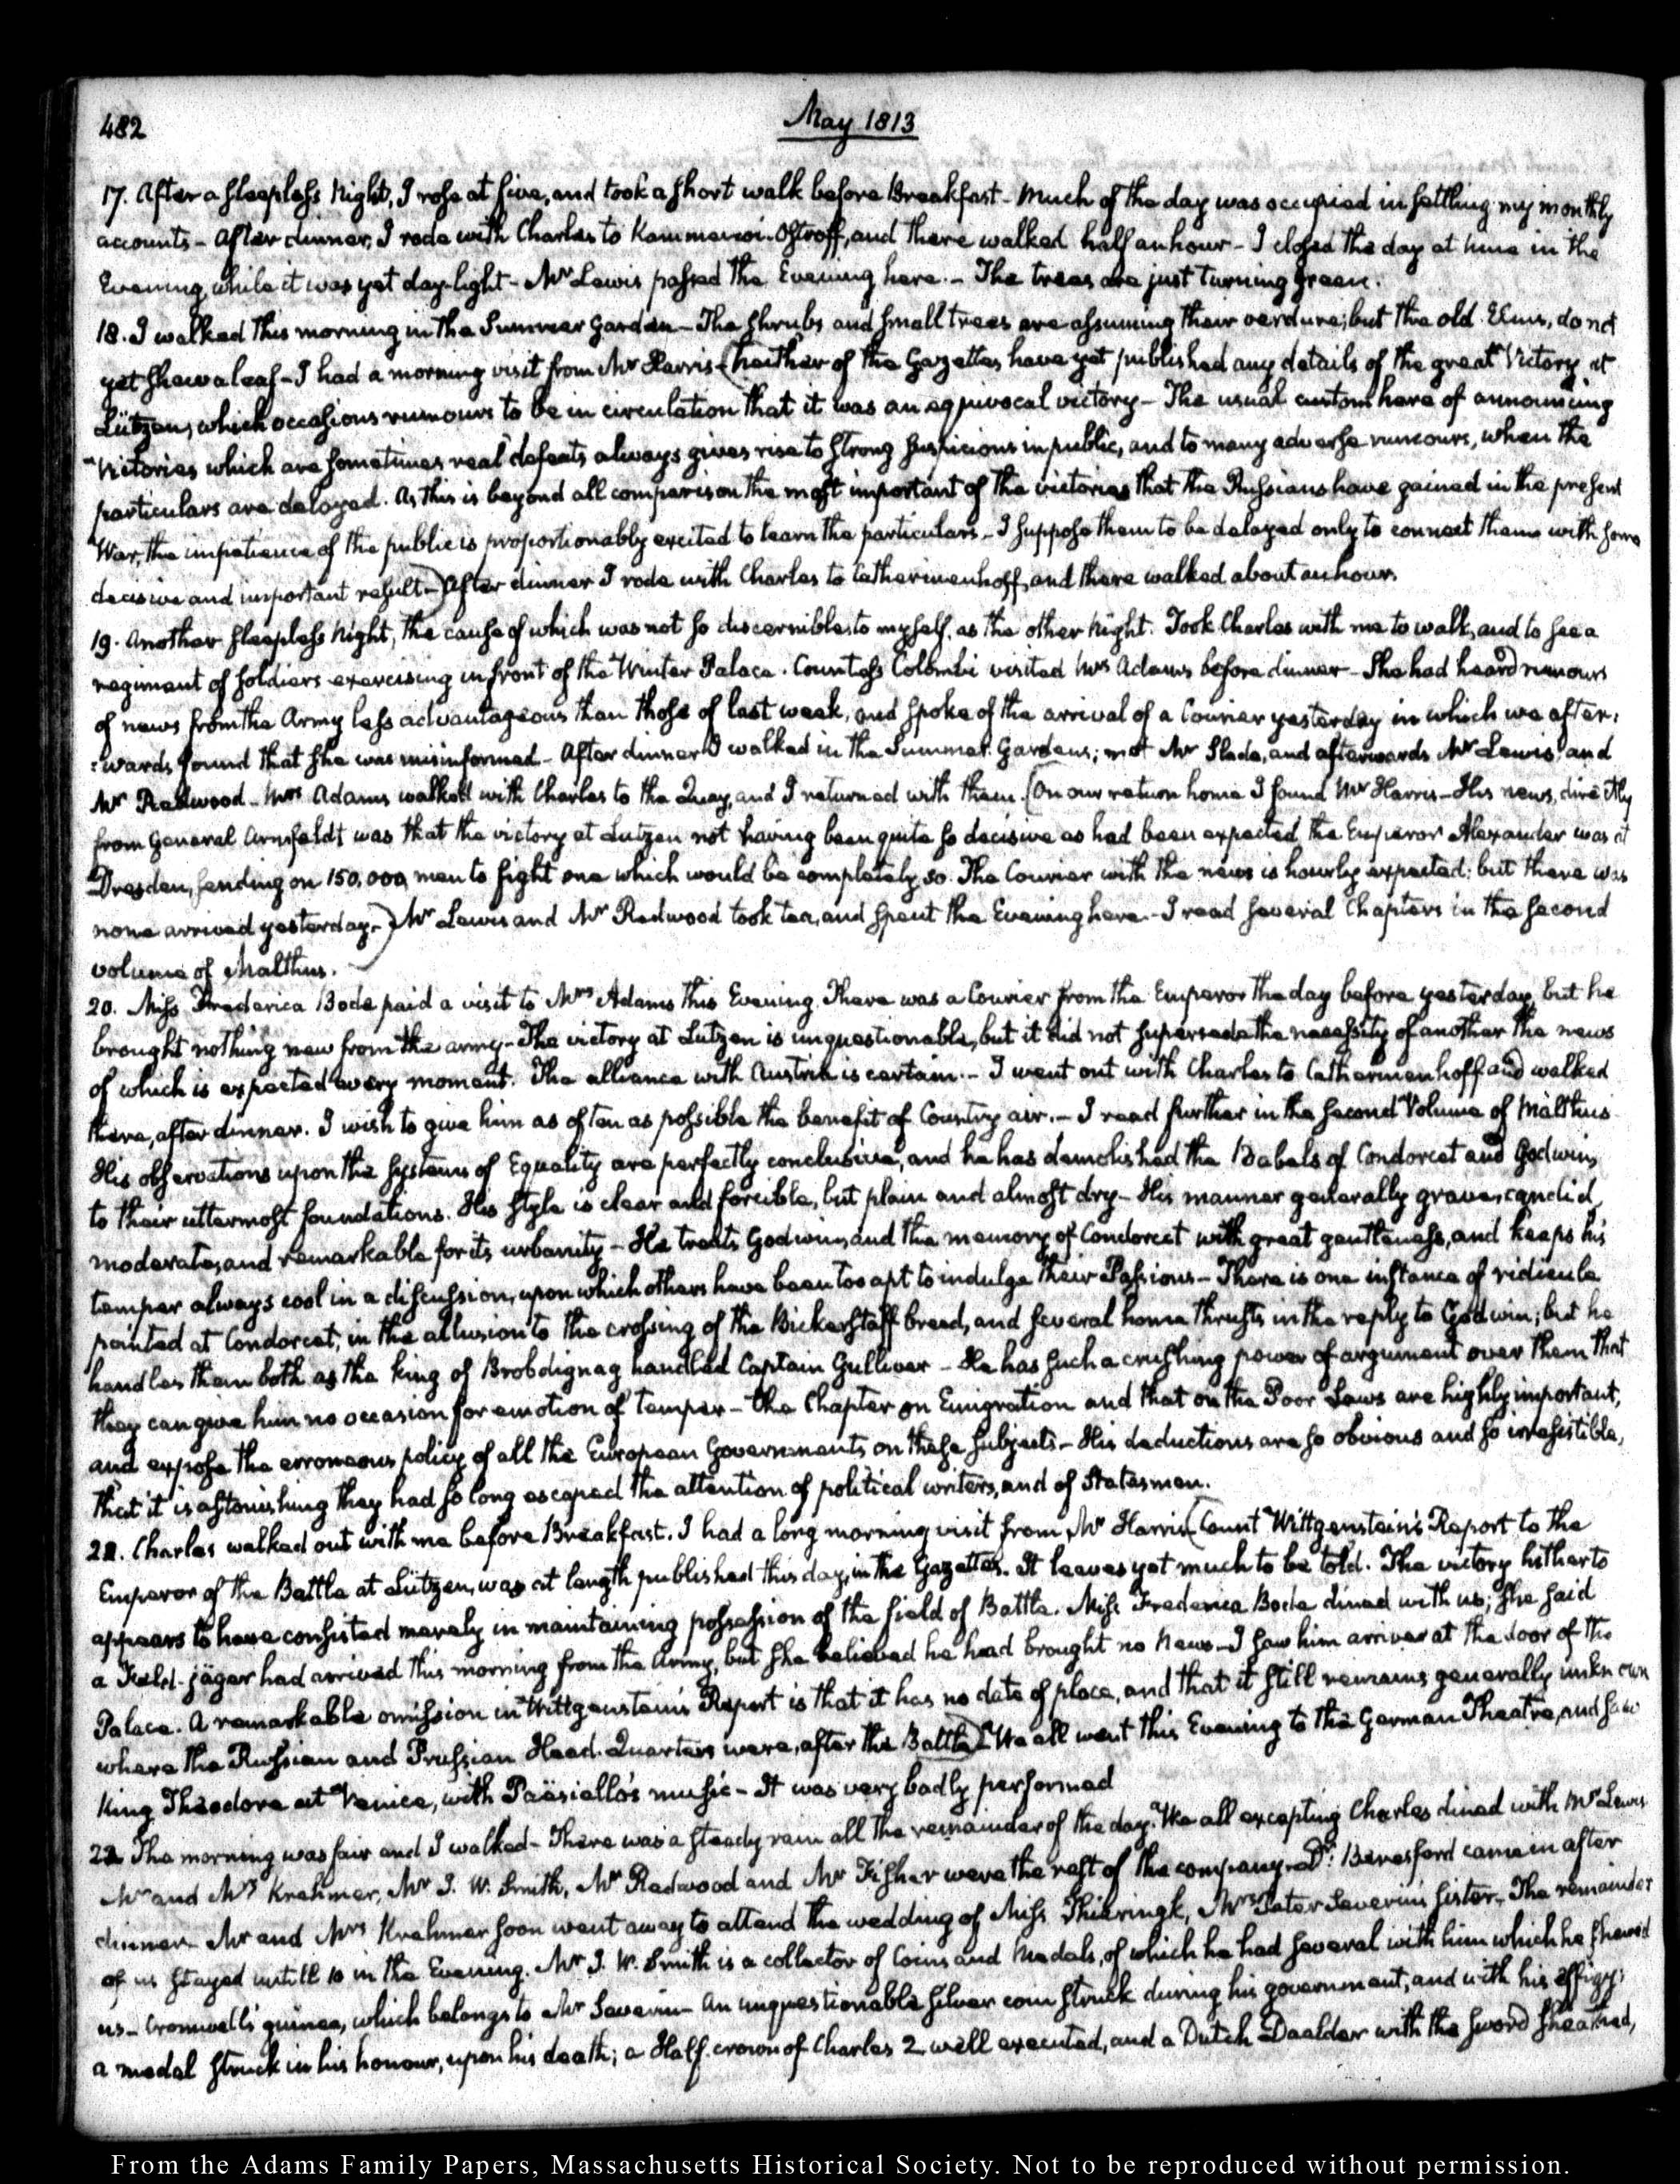 482
May 1813
17. After a sleepless Night, I rose at five, and took a short walk before Breakfast - Much of the day was occupied in settling my monthly
accounts - After dinner, I rode with Charles to Kammenoi-Ostroff, and there walked half an hour - I closed the day at nine in the
Evening while it was yet day-light - Mr Lewis passed the Evening here. - The trees are just turning green.
18. I walked this morning in the Summer Garden - The shrubs and small trees are assuming their verdure; but the old Elms, do not
yet shew a leaf - I had a morning visit from Mr Harris - (neither of the Gazettes have yet published any details of the great Victory at
Lützen, which occasions rumours to be in circulation that it was an equivocal victory - The usual custom here of announcing
Victories which are sometimes real defeats always gives rise to strong suspicions in public, and to many adverse rumours, when the
particulars are delayed. As this is beyond all comparison the most important of the victories that the Russians have gained in the present
War, the impatience of the public is proportionably excited to learn the particulars - I suppose them to be delayed only to connect them with some
decisive and important result -) After dinner I rode with Charles to Catherinenhoff, and there walked about an hour.
19. Another sleepless Night, the cause of which was not so discernible to myself, as the other Night. Took Charles with me to walk, and to see a
regiment of soldiers exercising in front of the Winter Palace. Countess Colombi visited Mrs Adams before dinner - She had heard rumours
of news from the Army less advantageous than those of last week, and spoke of the arrival of a Courier yesterday in which we after:
:wards found that she was misinformed - After dinner I walked in the Summer Gardens; met Mr Slade, and afterwards Mr Lewis and
Mr Redwood - Mrs Adams walked with Charles to the Quay, and I returned with them. (On our return home I found Mr Harris - His news, directly
from General Armfeldt was that the victory at Lutzen not having been quite so decisive as had been expected the Emperor Alexander was at
Dresden, sending on 150,000 men to fight one which would be completely so. The Courier with the news is hourly expected; but there was
none arrived yesterday -) Mr Lewis and Mr Redwood took tea, and spent the Evening here - I read several Chapters in the second
volume of Malthus.
20. Miss Frederica Bode paid a visit to Mrs Adams this Evening. There was a Courier from the Emperor the day before yesterday, but he
brought nothing new from the army - The victory at Lutzen is unquestionable, but it did not supersede the necessity of another the news
of which is expected every moment. The alliance with Austria is certain. - I went out with Charles to Catherinenhoff and walked
there, after dinner. I wish to give him as often as possible the benefit of Country air. - I read further in the second Volume of Malthus
His observations upon the systems of Equality are perfectly conclusive, and he has demolished the Babels of Condorcet and Godwin,
to their uttermost foundations. His style is clear and forcible, but plain and almost dry - His manner generally grave, candid,
moderate, and remarkable for its urbanity - He treats Godwin, and the memory of Condorcet with great gentleness, and keeps his
temper always cool in a discussion, upon which others have been too apt to indulge their Passions - There is one instance of ridicule
pointed at Condorcet, in the allusion to the crossing of the Bickerstaff breed, and several home thrusts in the reply to Godwin; but he
handles them both as the king of Brobdignag handled Captain Gulliver - He has such a crushing power of argument over them that
they can give him no occasion for emotion of temper - The Chapter on Emigration and that on the Poor Laws are highly important,
and expose the erroneous policy of all the European Governments on these subjects - His deductions are so obvious and so irresistible,
that it is astonishing they had so long escaped the attention of political writers, and of Statesmen.
21. Charles walked out with me before Breakfast. I had a long morning visit from Mr Harris (Count Wittgenstein's Report to the
Emperor of the Battle at Lützen, was at length published this day, in the Gazettes. It leaves yet much to be told. The victory hitherto
appears to have consisted merely in maintaining possession of the field of Battle. Miss Frederica Bode dined with us; she said
a Feld-jäger had arrived this morning from the Army, but she believed he had brought no News - I saw him arrive at the door of the
Palace. A remarkable omission in Wittgenstein's Report is that it has no date of place, and that it still remains generally unknown
where the Russian and Prussian Head-Quarters were, after the Battle) - We all went this Evening to the German Theatre, and saw
King Theodore at Venice, with Paësiello's music - It was very badly performed
22 The morning was fair and I walked - There was a steady rain all the remainder of the day. We all excepting Charles dined with Mr Lewis
Mr and Mrs Krehmer, Mr J. W. Smith, Mr Redwood and Mr Fisher were the rest of the company - Dr: Beresford came in after
dinner - Mr and Mrs Krehmer soon went away to attend the wedding of Miss Thieringk, Mrs Peter Severin's sister - The remainder
of us stayed untill 10 in the Evening. Mr J. W. Smith is a collector of Coins and Medals, of which he had several with him which he shewed
us - Cromwell's guinea, which belongs to Mr Severin - An unquestionable silver coin struck during his government, and with his effigy;
a medal struck in his honour, upon his death; a Half-crown of Charles 2 well executed, and a Dutch Daalder with the sword sheathed,
From the Adams Family Papers, Massachusetts Historical Society. Not to be reproduced without permission.